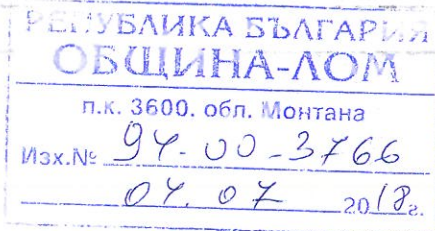 РЕПУБЛИКА БЪЛГАРИЯ
ОБЩИНА-ЛОМ
п.к. 3600. обл. Монтана
Изх.№ 94-00-3766
04.07 2018г.